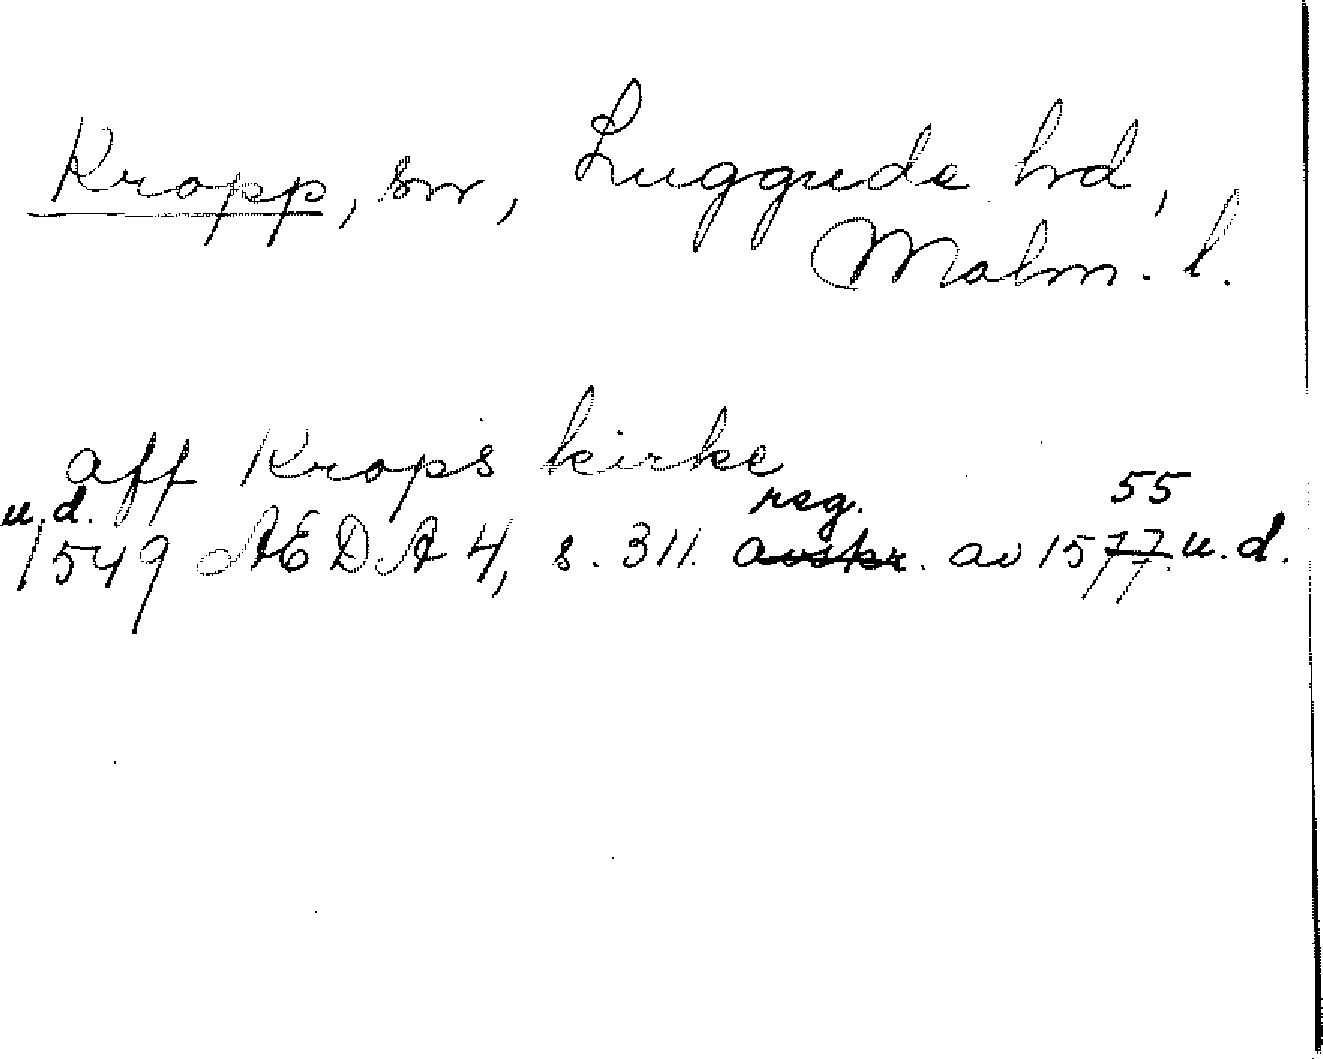 Kropp, sn, Luggude hd,
Malm. l.
aff Krops kirke
u.d. reg. 55
1549 ÆDA 4, s. 311. avskr. av 1577. u.d.